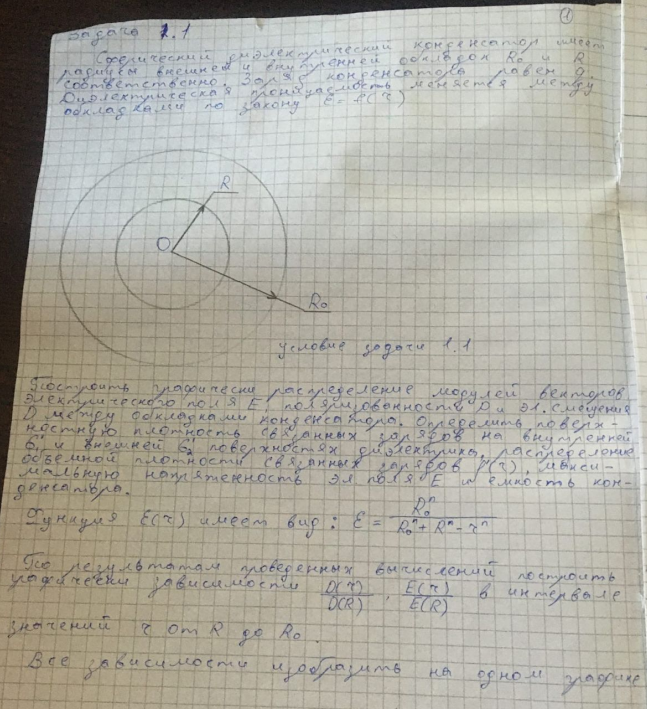 ①
Задача 1.1
Сферический диэлектрический конденсатор имеет
радиусы внешней и внутренней обкладок R₀ и R
соответственно. Заряд конденсатора равен q.
Диэлектрическая проницаемость меняется между
обкладками по закону ε = f(r)
R
O
R₀
условие задачи 1.1
Построить графически распределение модулей векторов
электрического поля E, поляризованности P и эл. смещения
D между обкладками конденсатора. Определить поверх-
ностную плотность связанных зарядов на внутренней
σ₁' и внешней σ₂' поверхностях диэлектрика, распределение
объемной плотности связанных зарядов ρ'(r), макси-
мальную напряженность эл поля E и емкость кон-
денсатора.
Функция ε(r) имеет вид: ε = R₀ⁿ / (R₀ⁿ + Rⁿ - rⁿ)
По результатам проведенных вычислений построить
графически зависимости D(r)/D(R), E(r)/E(R) в интервале
значений r от R до R₀.
Все зависимости изобразить на одном графике